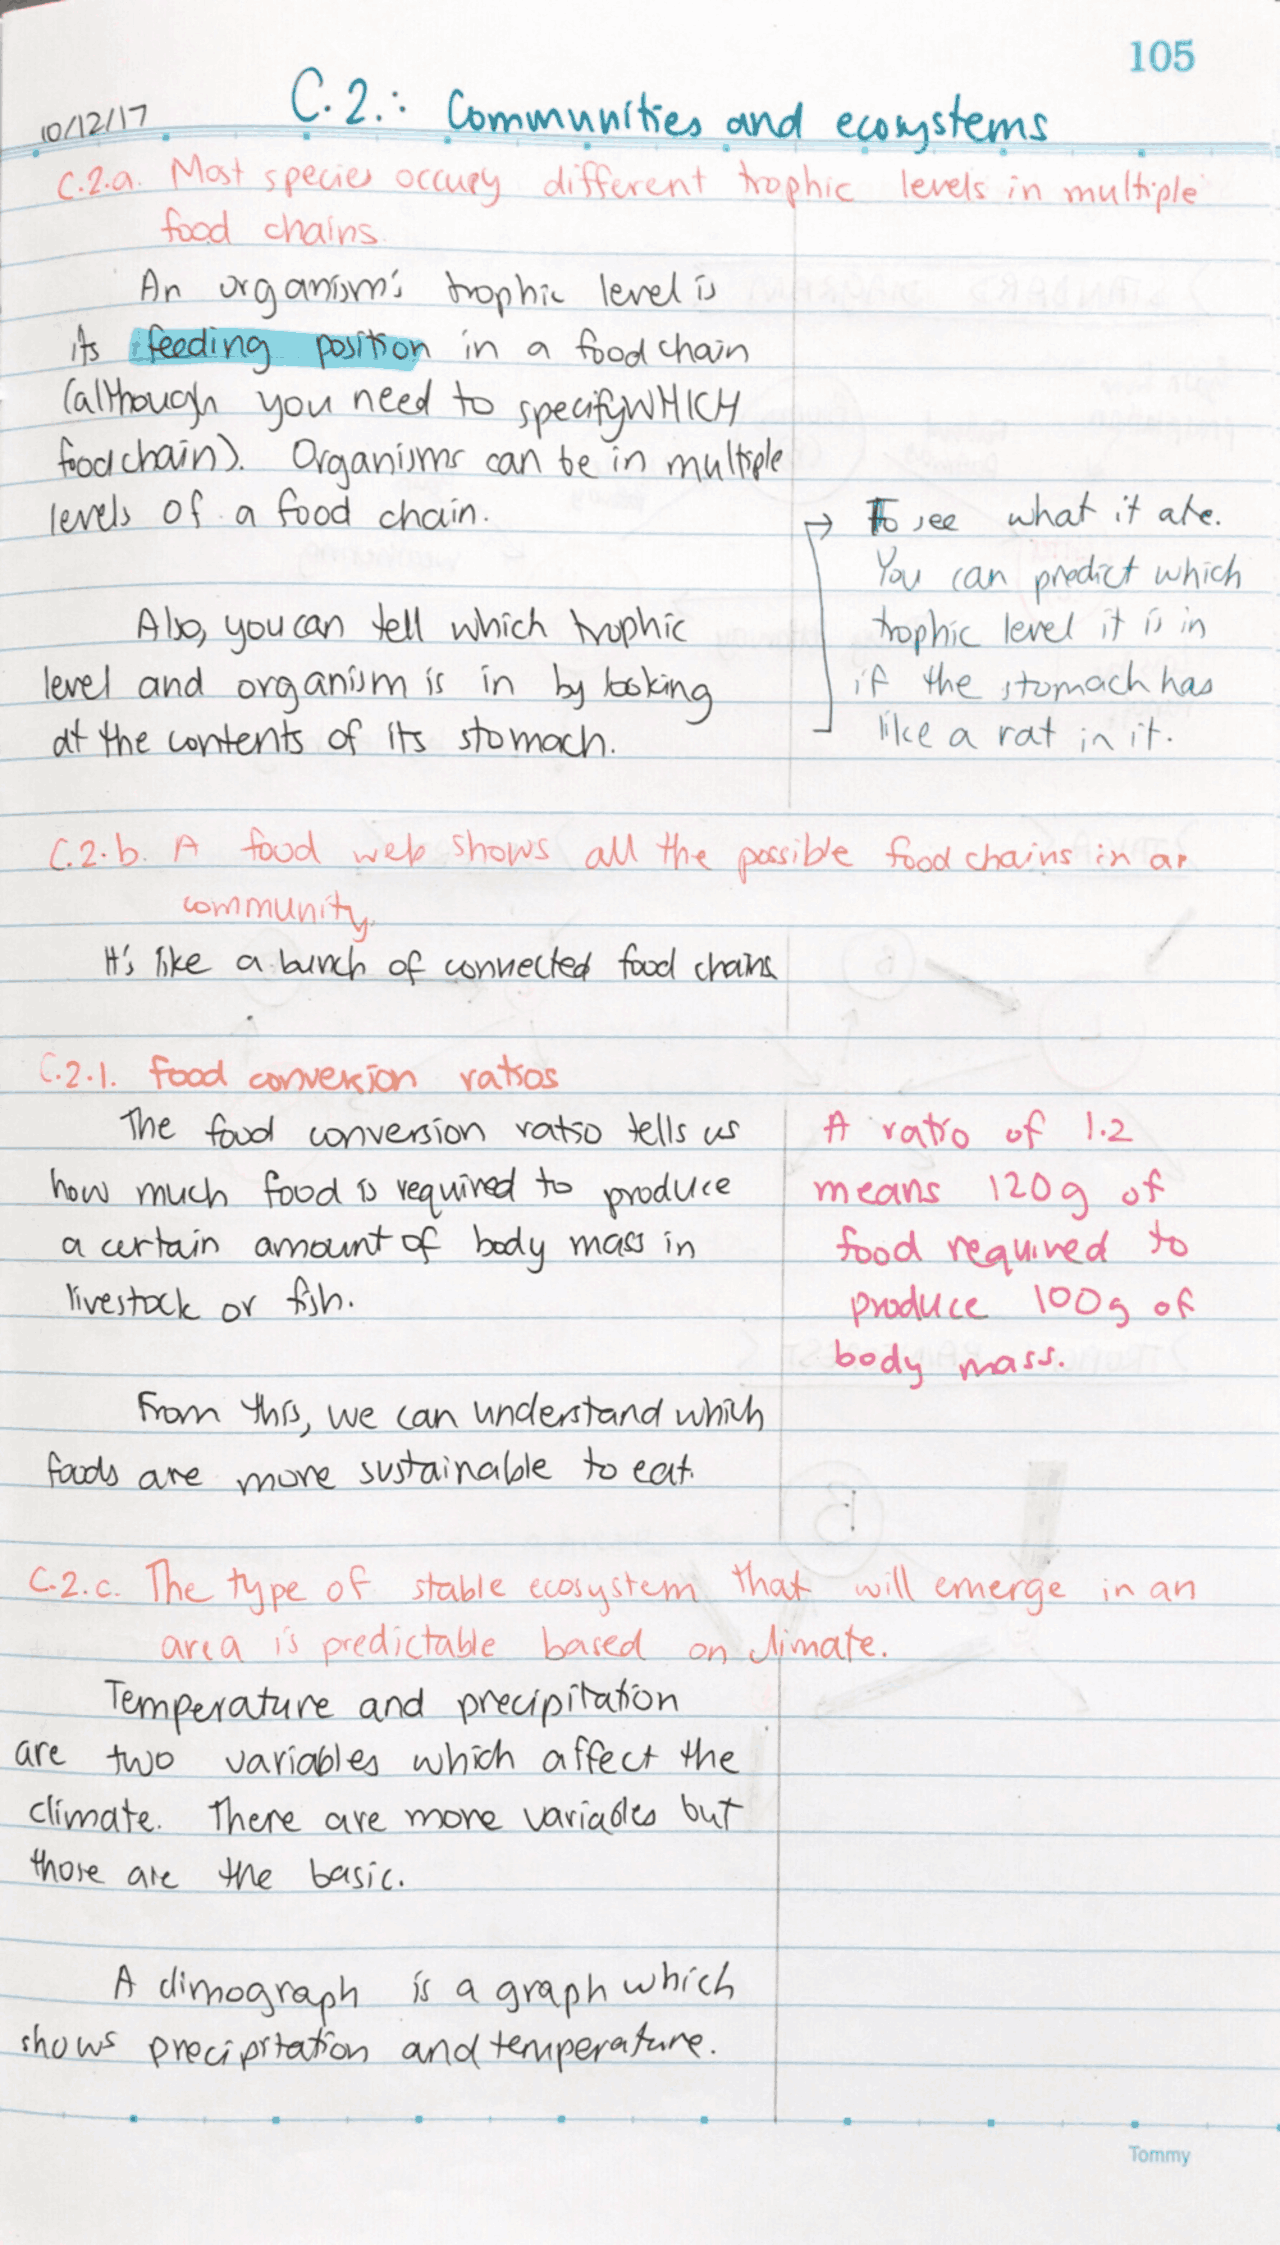 105
10/12/17
C.2.: Communities and ecosystems
C.2.a. Most species occupy different trophic levels in multiple
food chains.
An organism's trophic level is
its feeding position in a food chain
(although you need to specify WHICH
food chain). Organisms can be in multiple
levels of a food chain.
Also, you can tell which trophic
level and organism is in by looking
at the contents of its stomach.
→ To see what it ate.
You can predict which
trophic level it is in
if the stomach has
like a rat in it.
C.2.b. A food web shows all the possible food chains in an
community.
It's like a bunch of connected food chains
C.2.1. Food conversion ratios
The food conversion ratio tells us
how much food is required to produce
a certain amount of body mass in
livestock or fish.
A ratio of 1.2
means 120g of
food required to
produce 100g of
body mass.
From this, we can understand which
foods are more sustainable to eat.
C.2.c. The type of stable ecosystem that will emerge in an
area is predictable based on climate.
Temperature and precipitation
are two variables which affect the
climate. There are more variables but
those are the basic.
A climograph is a graph which
shows precipitation and temperature.
Tommy